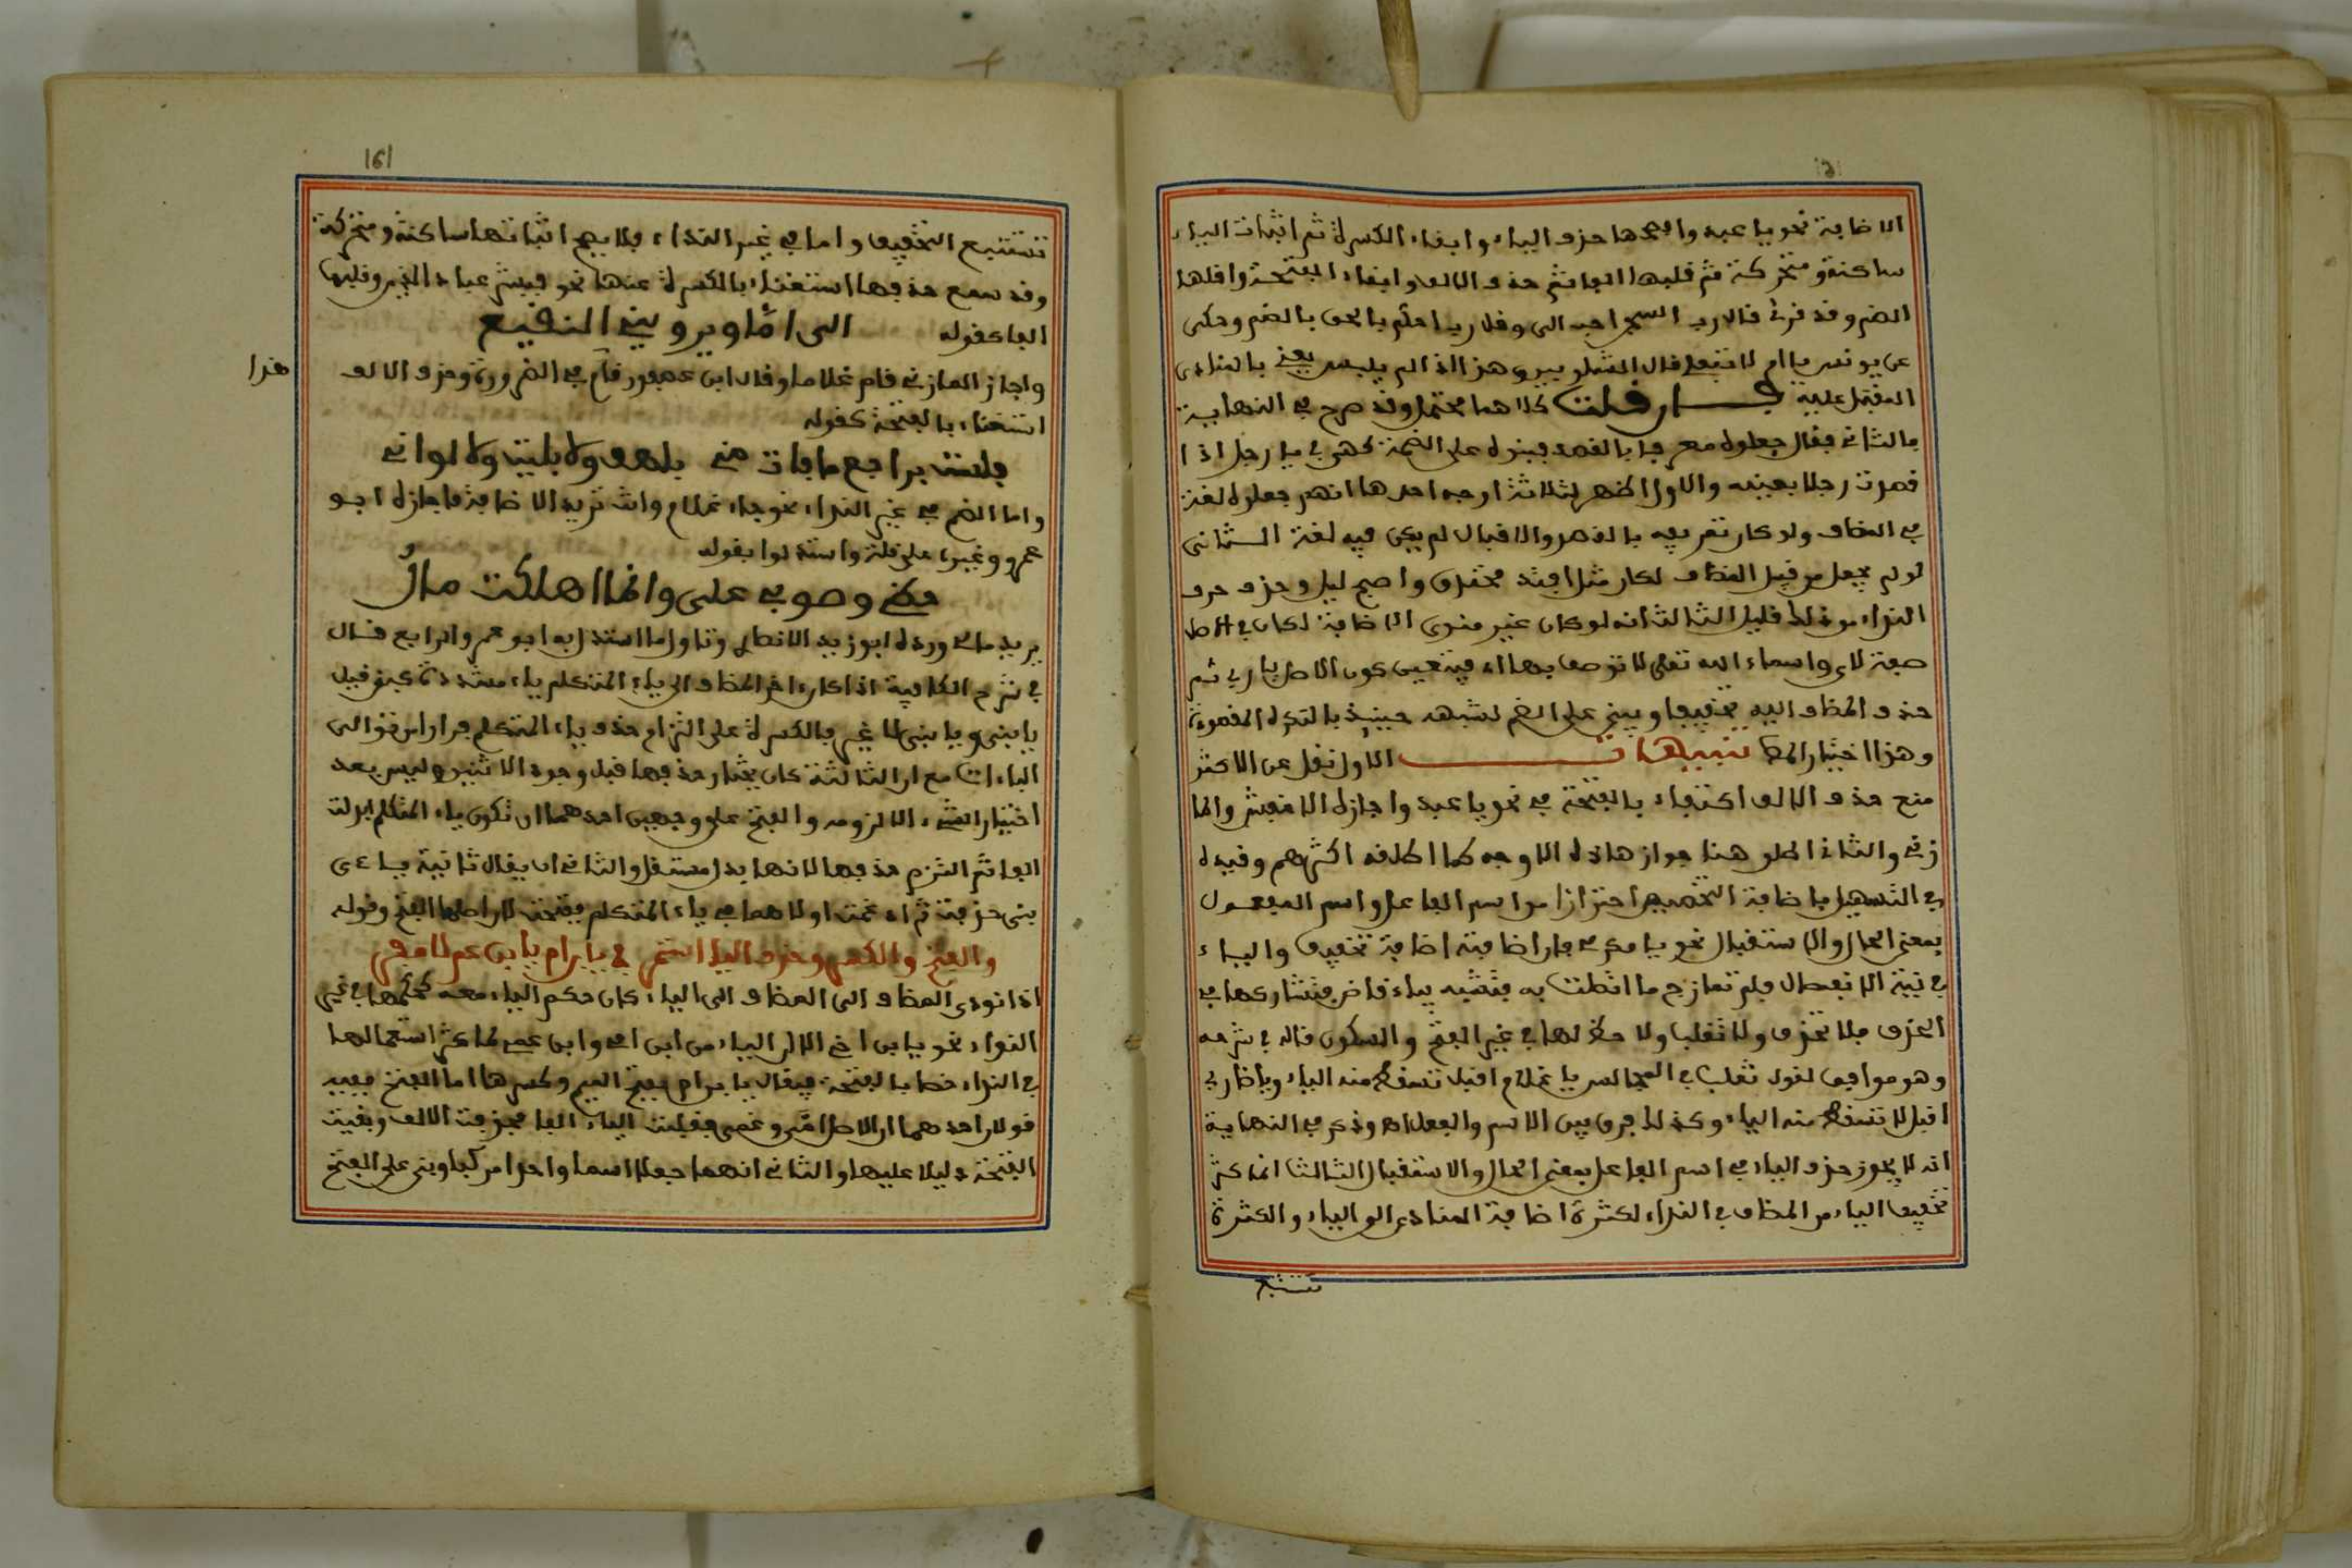 الاضافة نحو يا عبد وافصحها حذف الياء وابقاء الكسرة ثم اثبات الياء
ساكنة ومتحركة ثم قلبها الفا ثم حذف الالف وابقاء الفتحة واقلها
الضم وقد قرئ قال رب السجن احب الى وقل رب احكم بالحق بالضم وحكى
عن يونس يا ام لا تفعل قال الشلوبين وهذا اذا لم يلبس يعنى بالمنادى
المقبل عليه فان قلت كلاهما محتمل وقد صرح فى النهاية
بالثانى فقال جعلوه معرفا بالقصد فبنوه على الضمة كهى فى يا رجل اذا
قصدت رجلا بعينه والاول اظهر لثلاثة اوجه احدها انهم جعلوه لغة
فى المضاف ولو كان تعريفه بالقصد والاقبال لم يكن فيه لغة الثانى
لو لم يجعل من قبيل المضاف لكان مثل افتد مخنوق واصبح ليل وحذف حرف
النداء من ذلك قليل الثالث انه لو كان غير منوى الاضافة لكان فى الاصل
صفة لاى واسماء الله تعلى لا توصف بها اى فيتعين كون الاصل يا ربى ثم
حذف المضاف اليه تخفيفا وبنى على الضم لشبهه حينئذ بالنكرة المقصودة
وهذا اختيار المص تنبيهات الاول نقل عن الاكثر
منع حذف الالف اكتفاء بالفتحة فى نحو يا عبد واجازه الاخفش والما
زنى والثانى اطلق هنا جواز هاذه الاوجه كما اطلقه اكثرهم وقيده
فى التسهيل باضافة التخصيص احترازا من اسم الفاعل واسم المفعول
بمعنى الحال والاستقبال نحو يا مكرمى فان اضافته اضافة تخفيف والياء
فى نية الانفصال فلم تمازج ما اتصلت به فتشبه بياء قاض فتشاركها فى
الحذف فلا تحذف ولا تقلب ولا حظ لها فى غير الفتح والسكون قاله فى شرحه
وهو موافق لقول ثعلب فى المجالس يا غلام اقبل تسقط منه الياء ويا ضاربى
اقبل لا تسقط منه الياء وكذلك فرق بين الاسم والفعل اه وذكر فى النهاية
انه لا يجوز حذف الياء فى اسم الفاعل بمعنى الحال والاستقبال الثالث انما كثر
تخفيف الياء من المضاف فى النداء لكثرة اضافة المنادى الى الياء والكثرة
تستتبع
161
تستتبع التخفيف واما فى غير النداء فالافصح اثباتها ساكنة ومتحركة
وقد سمع حذفها استغناء بالكسرة عنها نحو فبشر عباد الذين وقلبها
الفا كقوله الى اما ويروينى النقيع
واجاز المازنى قام غلاما وقال ابن عصفور قام فى الضرورة وحذف الالف
هذا
استغناء بالفتحة كقوله
فلست براجع ما فات منى بلهف ولا بليت ولا لوانى
واما الضم فى غير النداء نحو جاء غلام وانت تريد الاضافة فاجازه ابو
عمرو وغيره على قلة واستدلوا بقوله
على وانما اهلكت مال
يريد مالى ورده ابو زيد الانصارى وتاول ما استدل به ابو عمرو الرابع قال
فى شرح الكافية اذا كان اخر المضاف الى ياء المتكلم ياء مشددة كبنى قيل
يا بنى ويا بنى لا غير بالكسرة على التزام حذف ياء المتكلم فرارا من توالى
الياءات مع ان الثالثة كان يختار حذفها قبل وجود الاثنين وليس بعد
اختيار الشىء الا لزومه والفتح على وجهين احدهما ان تكون ياء المتكلم ابدلت
الفا ثم التزم حذفها لانها بدل مستثقل والثانى ان يقال ثانية ياءى
بنى حذفت ثم ادغمت اولاهما فى ياء المتكلم ففتحت لان اصلها الفتح وقوله
والفتح والكسر وحذف اليا استمر فى يا ابن ام يا ابن عم لا مفر
اذا نودى المضاف الى المضاف الى الياء كان حكم الياء معه كحكمها فى غير
النداء نحو يا ابن اخى الا ان الياء من ابن امى وابن عمى لما كثر استعمالها
فى النداء خصا بالفتحة فيقال يا ابن ام بفتح الميم وكسرها اما الفتح ففيه
قولان احدهما ان الاصل اما وعما فقلبت الياء الفا فحذفت الالف وبقيت
الفتحة دليلا عليها والثانى انهما جعلا اسما واحدا مركبا وبنى على الفتح